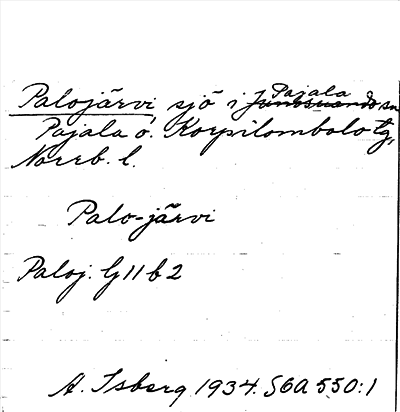 Palojärvi, sjö i Pajala
Junosuando sn
Pajala o. Korpilombolo tg,
Norrb. l.
Palo-järvi
Paloj. G 11 b 2
A. Isberg 1934. S6A 550:1